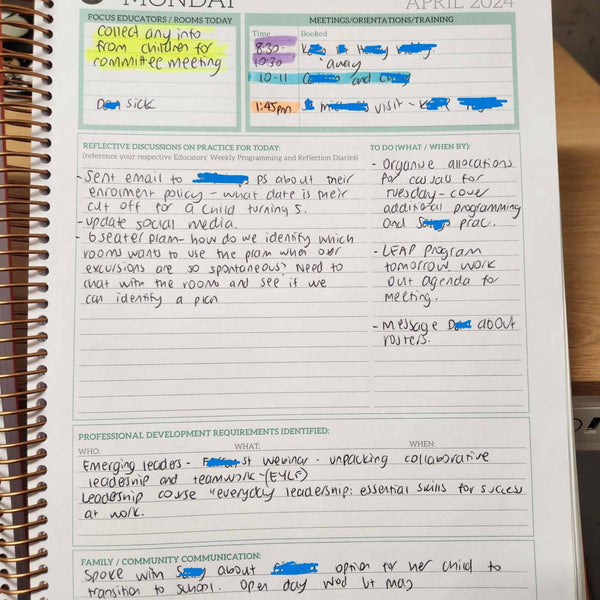 MONDAY
APRIL 2024
FOCUS EDUCATORS / ROOMS TODAY
collect any info
from children for
committee meeting
sick
MEETINGS/ORIENTATIONS/TRAINING
Time Booked
8.30-
10:30 away
10-11 and
1:45pm visit -
REFLECTIVE DISCUSSIONS ON PRACTICE FOR TODAY:
(reference your respective Educators' Weekly Programming and Reflection Diaries)
- Sent email to PS about their
enrolment policy - what date is their
cut off for a child turning 5.
- update social media.
- 6 seater pram - how do we identify which
rooms wants to use the pram when our
excursions are so spontaneous? Need to
chat with the rooms and see if we
can identify a plan
TO DO (WHAT / WHEN BY):
- Organise allocations
for casuals for
Tuesday - cover
additional programming
and prac.
- LEAP Program
tomorrow work
out agenda for
meeting.
- Message about
rosters.
PROFESSIONAL DEVELOPMENT REQUIREMENTS IDENTIFIED:
WHO: WHAT: WHEN:
Emerging leaders - st webinar - unpacking collaborative
leadership and teamwork - (EYLF)
Leadership course "everyday leadership: essential skills for success
at work.
FAMILY / COMMUNITY COMMUNICATION:
Spoke with about option for her child to
transition to school. Open day Wed 1st May